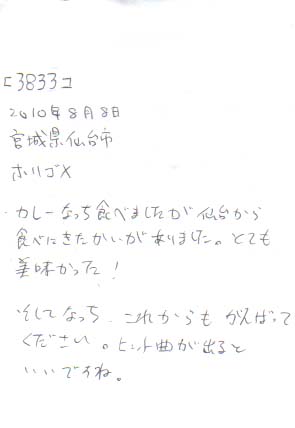 [3833]
2010年8月8日
宮城県仙台市
ホリゴメ
カレーなっち食べましたが仙台から
食べにきたかいがありました。とても
美味かった!
そしてなっち、これからもがんばって
ください。ヒット曲が出ると
いいですね。